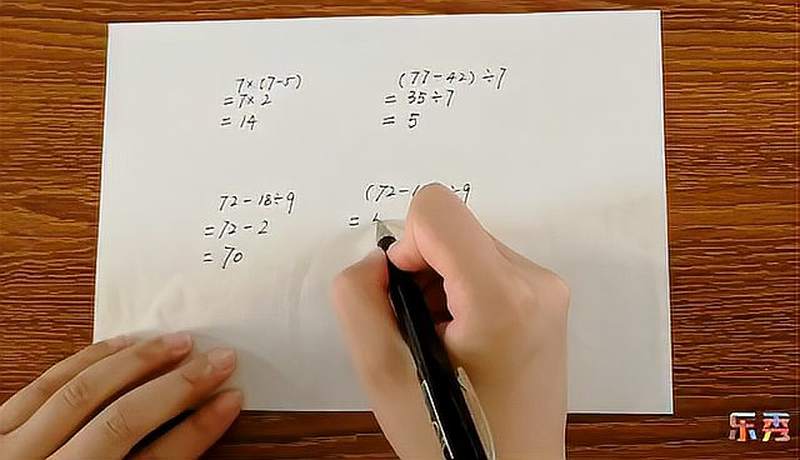 7×(7-5)
=7×2
=14
(77-42)÷7
=35÷7
=5
72-18÷9
=72-2
=70
(72-
÷9
=
乐秀